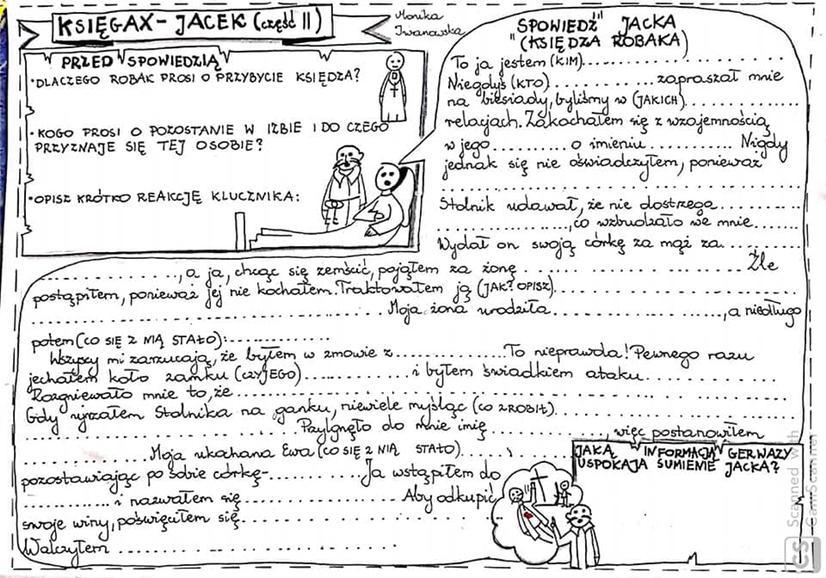 KSIĘGA X - JACEK (część II)
Monika
Iwanowska
PRZED SPOWIEDZIĄ
• DLACZEGO ROBAK PROSI O PRZYBYCIE KSIĘDZA?
• KOGO PROSI O POZOSTANIE W IZBIE I DO CZEGO
PRZYZNAJE SIĘ TEJ OSOBIE?
• OPISZ KRÓTKO REAKCJĘ KLUCZNIKA:
SPOWIEDŹ" JACKA
"(KSIĘDZA ROBAKA)
To ja jestem (KIM)..................
Niegdyś (KTO)..................zapraszał mnie
na biesiady, byliśmy w (JAKICH)..................
relacjach. Zakochałem się z wzajemnością
w jego..........o imieniu.......... Nigdy
jednak się nie oświadczyłem, ponieważ
....................................
Stolnik udawał, że nie dostrzega..........
..................,co wzbudzało we mnie.....
Wydał on swoją córkę za mąż za..........
..................,a ja, chcąc się zemścić, pojąłem za żonę.................. Źle
postąpiłem, ponieważ jej nie kochałem. Traktowałem ją (JAK? OPISZ)..................
.................................... Moja żona urodziła..................,a niedługo
potem (CO SIĘ Z NIĄ STAŁO):..................
Wszyscy mi zarzucają, że byłem w zmowie z..................To nieprawda! Pewnego razu
jechałem koło zamku (CZYJEGO)..................i byłem świadkiem ataku..................
Rozgniewało mnie to, że....................................
Gdy ujrzałem Stolnika na ganku, niewiele myśląc (CO ZROBIŁ)..................
.................................... Przylgnęło do mnie imię.................., więc postanowiłem
.................. Moja ukochana Ewa (CO SIĘ Z NIĄ STAŁO)..................
pozostawiając po sobie córkę-..................Ja wstąpiłem do
..................i nazwałem się..................Aby odkupić
swoje winy, poświęciłem się..................
Walczyłem..................
JAKA INFORMACJA GERWAZY
USPOKAJA SUMIENIE JACKA?
CS Scanned with
CamScanner